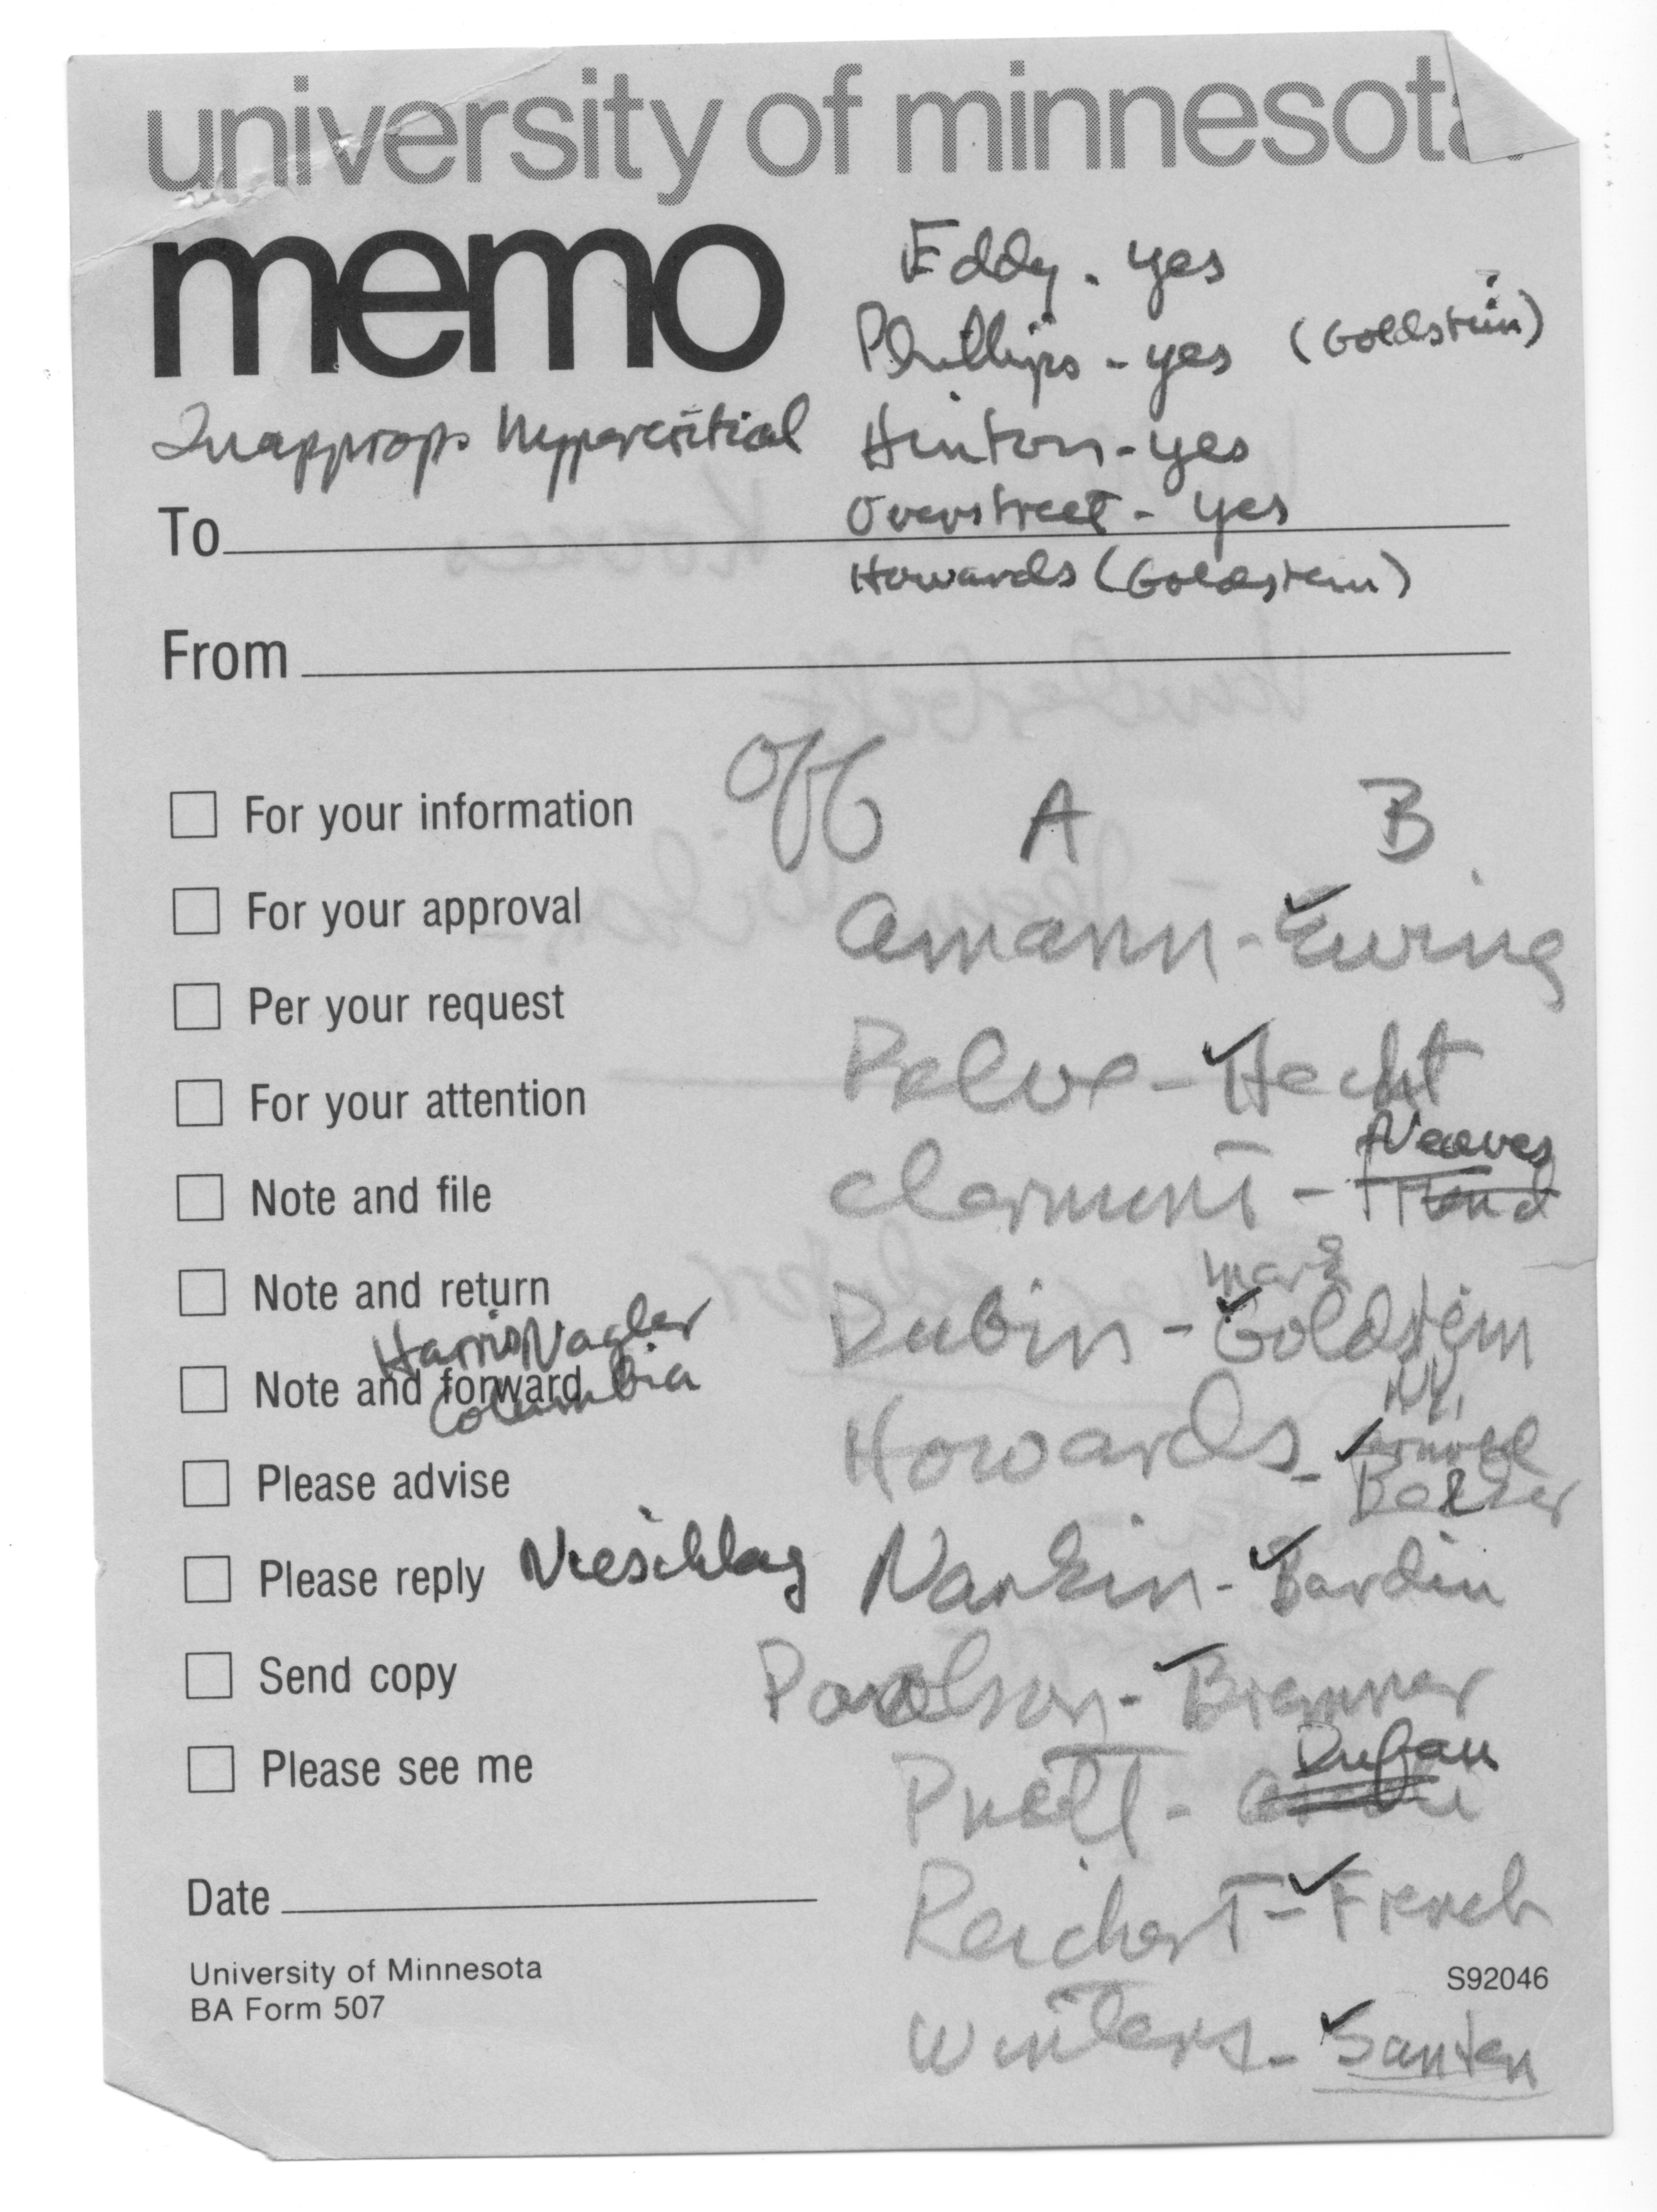 university of minnesota
memo
Eddy - yes
Phillips - yes (Goldstein)
?
Inapprop. Hypercritical
Hinton - yes
Overstreet - yes
To
Howards (Goldstein)
From
Off A B
For your information
For your approval
Amann - ✓ Ewing
Per your request
Pelve - ✓ Hecht
For your attention
Neaves
Note and file
Clermont -
Note and return
Marc
Dubin - ✓ Goldstein
Harris Nagler
Columbia
Note and forward
N.Y.
Howards - ✓
Belker
Please advise
Please reply
Nieschlag
Nankin - ✓ Bardin
Send copy
Paulson - ✓ Bremner
Please see me
Dufau
Pruett -
Date
Reichert - ✓ French
University of Minnesota
BA Form 507
S92046
Winters - ✓ Santen